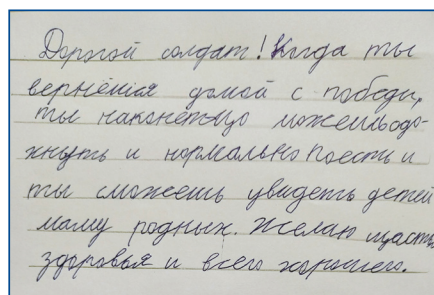 Дорогой солдат! Когда ты
вернёшся домой с победы,
ты наконетсцо можешь одо-
хнуть и нормально поесть и
ты сможешь увидеть детей
маму родных. Желаю щасть
здоровья и всего хорошего.